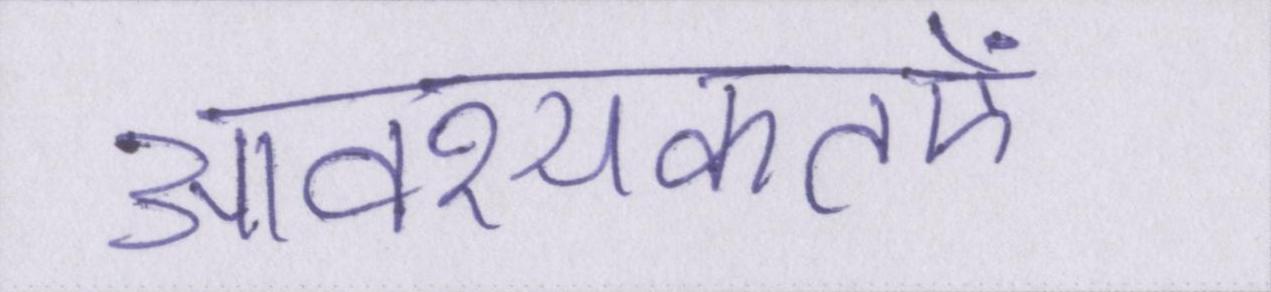 आवश्यकतऐं